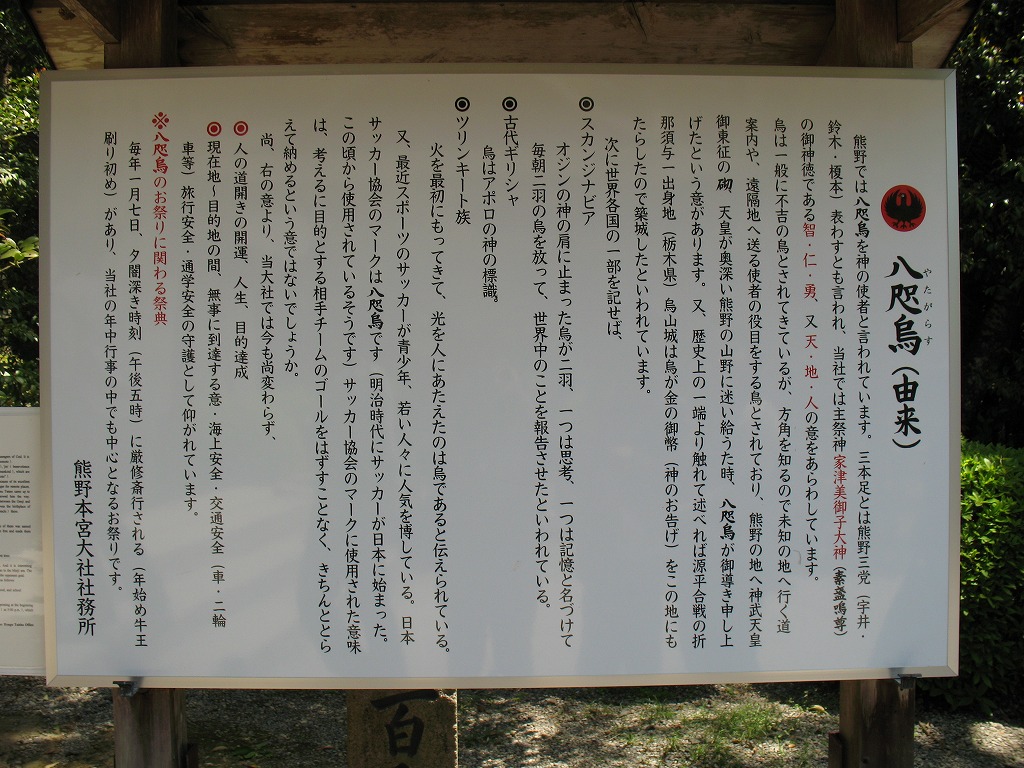 八咫烏（由来）
やたがらす
熊野では八咫烏を神の使者と言われています。三本足とは熊野三党（宇井・
鈴木・榎本）表わすとも言われ、当社では主祭神家津美御子大神（素盞鳴尊）
の御神徳である智・仁・勇、又天・地・人の意をあらわしています。
烏は一般に不吉の鳥とされてきているが、方角を知るので未知の地へ行く道
案内や、遠隔地へ送る使者の役目をする鳥とされており、熊野の地へ神武天皇
御東征の砌、天皇が奥深い熊野の山野に迷い給うた時、八咫烏が御導き申し上
げたという意があります。又、歴史上の一端より触れて述べれば源平合戦の折
那須与一出身地（栃木県）烏山城は烏が金の御幣（神のお告げ）をこの地にも
たらしたので築城したといわれています。
次に世界各国の一部を記せば、
◉スカンジナビア
オジンの神の肩に止まった烏が二羽、一つは思考、一つは記憶と名づけて
毎朝二羽の烏を放って、世界中のことを報告させたといわれている。
◉古代ギリシャ
烏はアポロの神の標識。
◉ツリンキート族
火を最初にもってきて、光を人にあたえたのは烏であると伝えられている。
又、最近スポーツのサッカーが青少年、若い人々に人気を博している。日本
サッカー協会のマークは八咫烏です（明治時代にサッカーが日本に始まった。
この頃から使用されているそうです）サッカー協会のマークに使用された意味
は、考えるに目的とする相手チームのゴールをはずすことなく、きちんととら
えて納めるという意ではないでしょうか。
尚、右の意より、当大社では今も尚変わらず、
◉人の道開きの開運、人生、目的達成
◉現在地〜目的地の間、無事に到達する意・海上安全・交通安全（車・二輪
車等）旅行安全・通学安全の守護として仰がれています。
※八咫烏のお祭りに関わる祭典
毎年一月七日、夕闇深き時刻（午後五時）に厳修斎行される（年始め牛王
刷り初め）があり、当社の年中行事の中でも中心となるお祭りです。
熊野本宮大社社務所
百